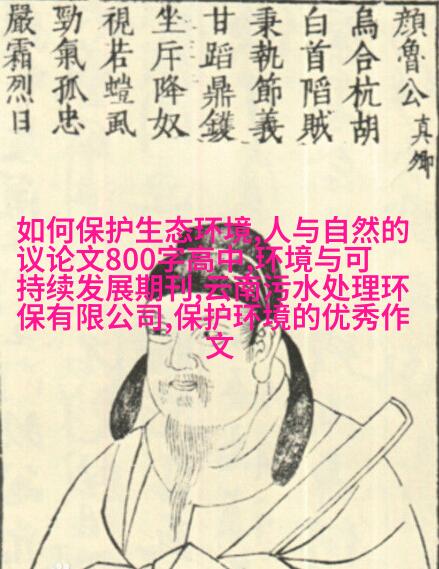 顔魯公真卿
烏合杭胡
白首陷賊
秉執節義
甘蹈鼎鑊
坐斥降奴
視若螘虱
勁氣孤忠
嚴霜烈日
如何保护生态环境,人与自然的
议论文800字高中,环境与可
持续发展期刊,云南污水处理环
保有限公司,保护环境的优秀作
文